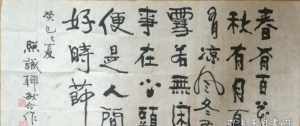 春有百花
秋有月夏
有凉风冬有
雪若無闲
事在心頭
便是人間
好時節
癸巳之夏
照誠